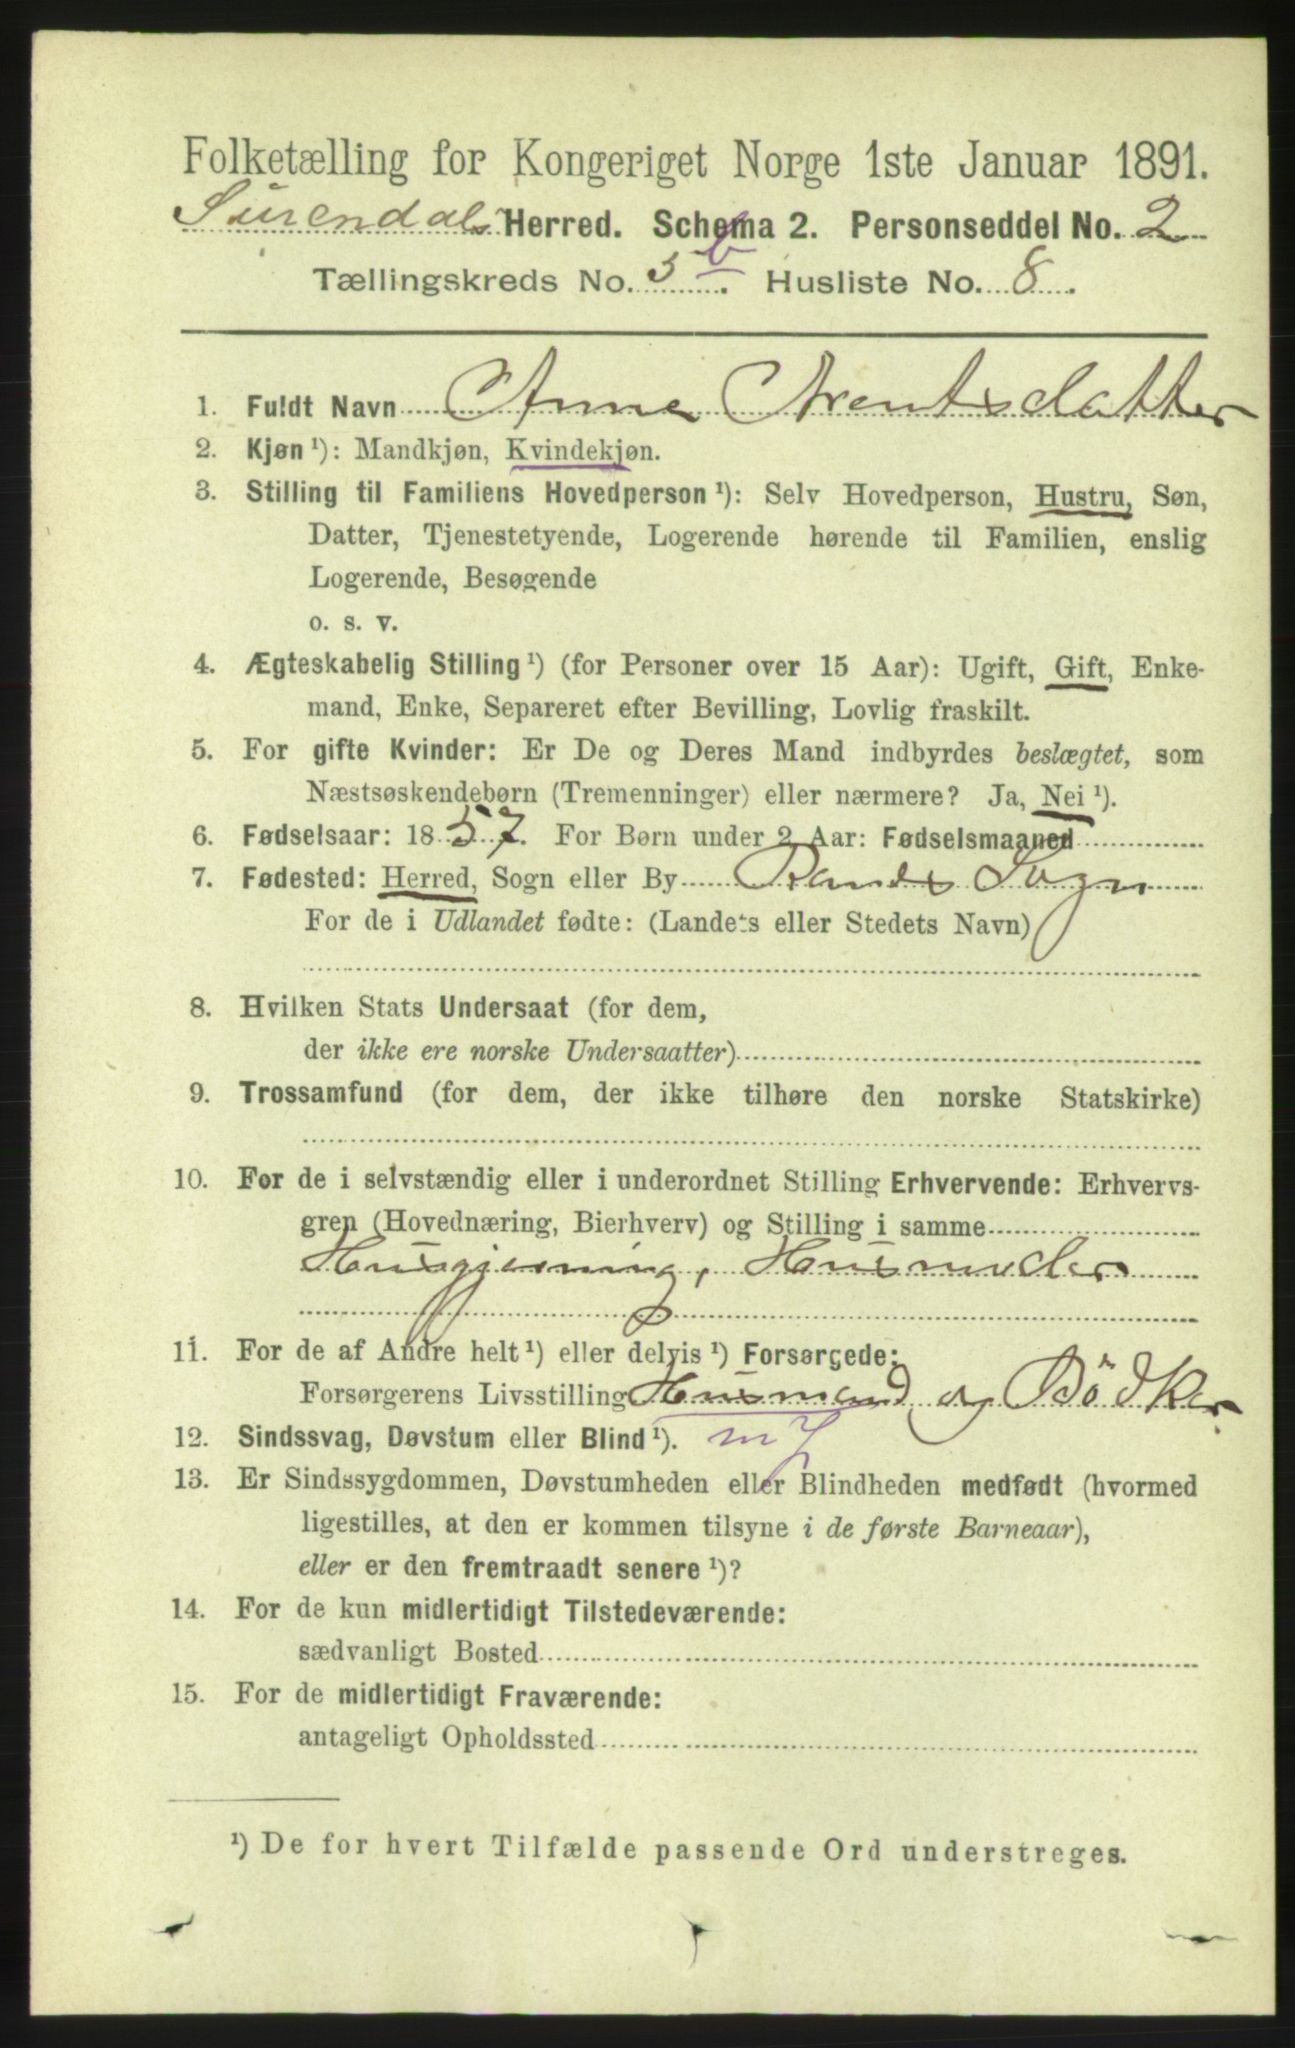 Folketælling for Kongeriget Norge 1ste Januar 1891.
Surendals Herred. Schema 2. Personseddel No. 2
Tællingskreds No. 5 b. Husliste No. 8.
1. Fuldt Navn Anne Arentsdatter
2. Kjøn ¹): Mandkjøn, Kvindekjøn.
3. Stilling til Familiens Hovedperson ¹): Selv Hovedperson, Hustru, Søn,
Datter, Tjenestetyende, Logerende hørende til Familien, enslig
Logerende, Besøgende
o. s. v.
4. Ægteskabelig Stilling ¹) (for Personer over 15 Aar): Ugift, Gift, Enke-
mand, Enke, Separeret efter Bevilling, Lovlig fraskilt.
5. For gifte Kvinder: Er De og Deres Mand indbyrdes beslægtet, som
Næstsøskendebørn (Tremenninger) eller nærmere? Ja, Nei ¹).
6. Fødselsaar: 1857. For Børn under 2 Aar: Fødselsmaaned
7. Fødested: Herred, Sogn eller By Rands Sogn
For de i Udlandet fødte: (Landets eller Stedets Navn)
8. Hvilken Stats Undersaat (for dem,
der ikke ere norske Undersaatter)
9. Trossamfund (for dem, der ikke tilhøre den norske Statskirke)
10. For de i selvstændig eller i underordnet Stilling Erhvervende: Erhvervs-
gren (Hovednæring, Bierhverv) og Stilling i samme
Husgjerning, Husmoder
11. For de af Andre helt ¹) eller delvis ¹) Forsørgede:
Forsørgerens Livsstilling Husmand og Bödker
12. Sindssvag, Døvstum eller Blind ¹).
13. Er Sindssygdommen, Døvstumheden eller Blindheden medfødt (hvormed
ligestilles, at den er kommen tilsyne i de første Barneaar),
eller er den fremtraadt senere ¹)?
14. For de kun midlertidigt Tilstedeværende:
sædvanligt Bosted
15. For de midlertidigt Fraværende:
antageligt Opholdssted
¹) De for hvert Tilfælde passende Ord understreges.